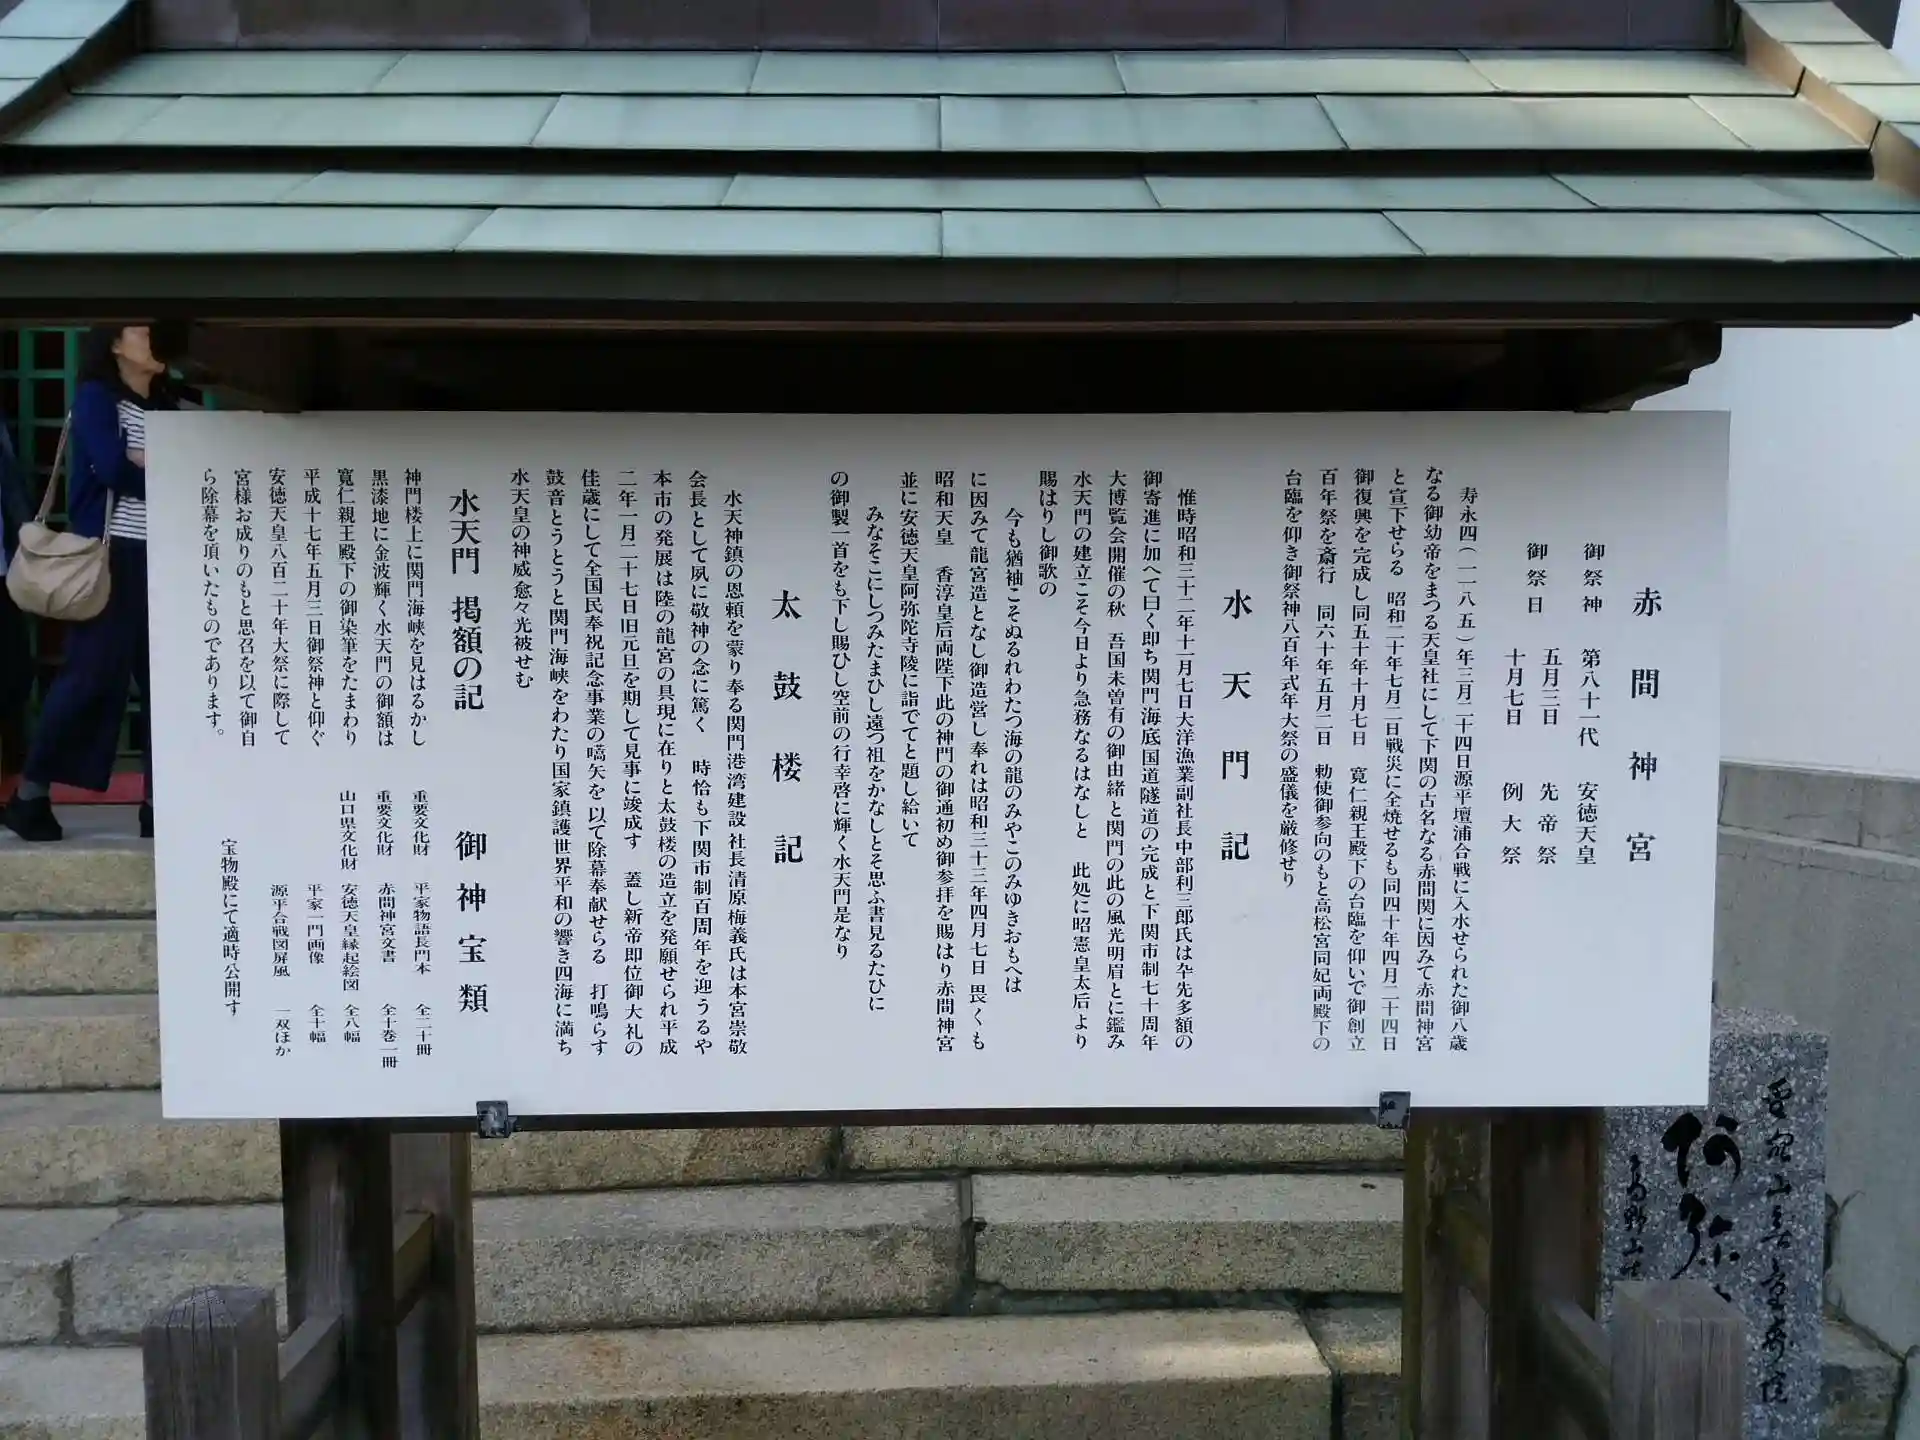 赤間神宮
御祭神　第八十一代　安徳天皇
御祭日　五月三日　先帝祭
十月七日　例大祭
寿永四(一一八五)年三月二十四日源平壇浦合戦に入水せられた御八歳
なる御幼帝をまつる天皇社にして下関の古名なる赤間関に因みて赤間神宮
と宣下せらる　昭和二十年七月二日戦災に全焼せるも同四十年四月二十四日
御復興を完成し同五十年十月七日　寛仁親王殿下の台臨を仰いで御創立
百年祭を斎行　同六十年五月二日　勅使御参向のもと高松宮同妃両殿下の
台臨を仰き御祭神八百年式年大祭の盛儀を厳修せり
水天門記
惟時昭和三十二年十一月七日大洋漁業副社長中部利三郎氏は夲先多額の
御寄進に加へて曰く即ち関門海底国道隧道の完成と下関市制七十周年
大博覧会開催の秋　吾国未曽有の御由緒と関門の此の風光明眉とに鑑み
水天門の建立こそ今日より急務なるはなしと　此処に昭憲皇太后より
賜はりし御歌の
今も猶袖こそぬるれわたつ海の龍のみやこのみゆきおもへは
に因みて龍宮造となし御造営し奉れは昭和三十三年四月七日 畏くも
昭和天皇　香淳皇后両陛下此の神門の御通初め御参拝を賜はり赤間神宮
並に安徳天皇阿弥陀寺陵に詣でてと題し給いて
みなそこにしつみたまひし遠つ祖をかなしとそ思ふ書見るたひに
の御製一首をも下し賜ひし空前の行幸啓に輝く水天門是なり
太鼓楼記
水天神鎮の恩頼を蒙り奉る関門港湾建設 社長清原梅義氏は本宮崇敬
会長として夙に敬神の念に篤く　時恰も下関市制百周年を迎うるや
本市の発展は陸の龍宮の具現に在りと太鼓楼の造立を発願せられ平成
二年一月二十七日旧元旦を期して見事に竣成す　蓋し新帝即位御大礼の
佳歳にして全国民奉祝記念事業の嚆矢を以て除幕奉献せらる　打鳴らす
鼓音とうとうと関門海峡をわたり国家鎮護世界平和の響き四海に満ち
水天皇の神威愈々光被せむ
水天門 掲額の記
神門楼上に関門海峡を見はるかし
黒漆地に金波輝く水天門の御額は
寛仁親王殿下の御染筆をたまわり
平成十七年五月三日御祭神と仰ぐ
安徳天皇八百二十年大祭に際して
宮様お成りのもと思召を以て御自
ら除幕を頂いたものであります。
御神宝類
重要文化財　平家物語長門本　全二十冊
重要文化財　赤間神宮文書　全十巻一冊
山口県文化財　安徳天皇縁起絵図　全八幅
平家一門画像　全十幅
源平合戦図屏風　一双ほか
宝物殿にて適時公開す
阿弥
高野山